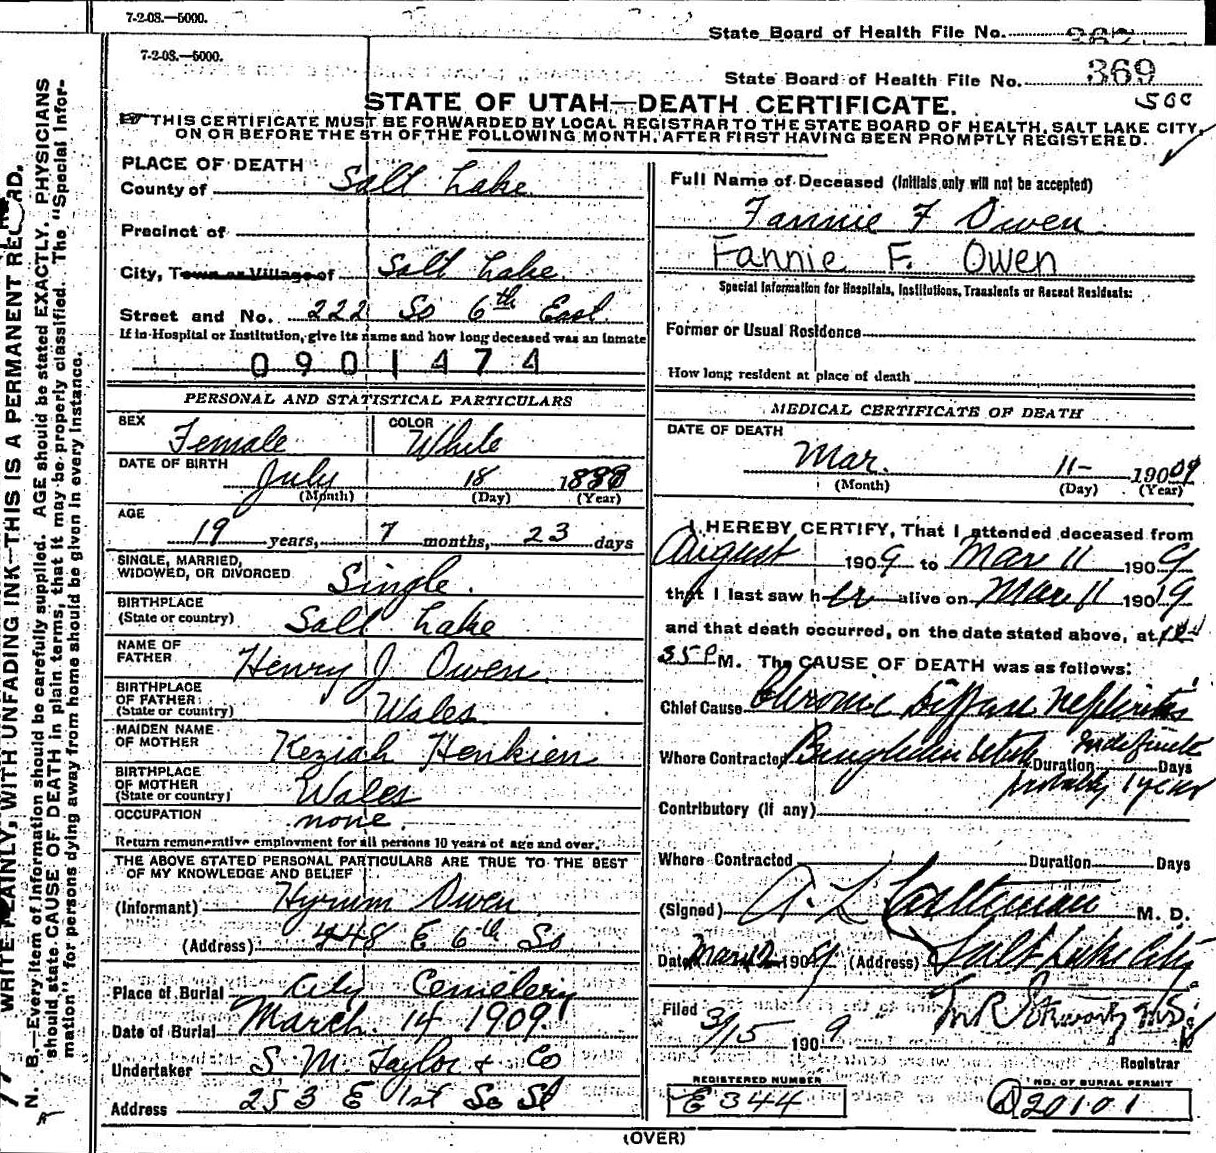 7-2-08.—5000.
State Board of Health File No.
7-2-08.—5000.
State Board of Health File No. 369
500
STATE OF UTAH—DEATH CERTIFICATE.
THIS CERTIFICATE MUST BE FORWARDED BY LOCAL REGISTRAR TO THE STATE BOARD OF HEALTH, SALT LAKE CITY,
ON OR BEFORE THE 5TH OF THE FOLLOWING MONTH, AFTER FIRST HAVING BEEN PROMPTLY REGISTERED.
WRITE PLAINLY, WITH UNFADING INK—THIS IS A PERMANENT RECORD.
N. B.—Every item of information should be carefully supplied. AGE should be stated EXACTLY. PHYSICIANS
should state CAUSE OF DEATH in plain terms, that it may be properly classified. The "Special Infor-
mation" for persons dying away from home should be given in every instance.
PLACE OF DEATH
County of Salt Lake
Precinct of
City, Town or Village of Salt Lake
Street and No. 222 So 6th East
If in Hospital or Institution, give its name and how long deceased was an inmate
0901474
PERSONAL AND STATISTICAL PARTICULARS
SEX Female COLOR White
DATE OF BIRTH July 18 188
(Month) (Day) (Year)
AGE
19 years, 7 months, 23 days
SINGLE, MARRIED,
WIDOWED, OR DIVORCED Single.
BIRTHPLACE
(State or country) Salt Lake
NAME OF
FATHER Henry J Owen.
BIRTHPLACE
OF FATHER
(State or country) Wales
MAIDEN NAME
OF MOTHER Keziah Henkien
BIRTHPLACE
OF MOTHER
(State or country) Wales
OCCUPATION none.
Return remunerative employment for all persons 10 years of age and over.
THE ABOVE STATED PERSONAL PARTICULARS ARE TRUE TO THE BEST
OF MY KNOWLEDGE AND BELIEF
(Informant) Hyrum Owen
(Address) 448 E 6th So
Place of Burial City Cemetery
Date of Burial March 14 1909.
Undertaker S. M. Taylor & Co
Address 253 E 1st So St
Full Name of Deceased (Initials only will not be accepted)
Fannie F Owen
Fannie F. Owen
Special Information for Hospitals, Institutions, Transients or Recent Residents:
Former or Usual Residence
How long resident at place of death
MEDICAL CERTIFICATE OF DEATH
DATE OF DEATH
Mar. 11- 1909
(Month) (Day) (Year)
I HEREBY CERTIFY, That I attended deceased from
August 1909 to Mar 11 1909
that I last saw her alive on Mar 11 1909
and that death occurred, on the date stated above, at
35 P M. The CAUSE OF DEATH was as follows:
Chief Cause Chronic Diffuse Nephritis
Where Contracted Bingham Utah Duration Indefinite Days
probably 1 year
Contributory (if any)
Where Contracted Duration Days
(Signed) A. L. M. D.
Date Mar 12 1909 (Address) Salt Lake City
Filed 3/15 1909
Registrar
REGISTERED NUMBER
E344
NO. OF BURIAL PERMIT
A20101
(OVER)